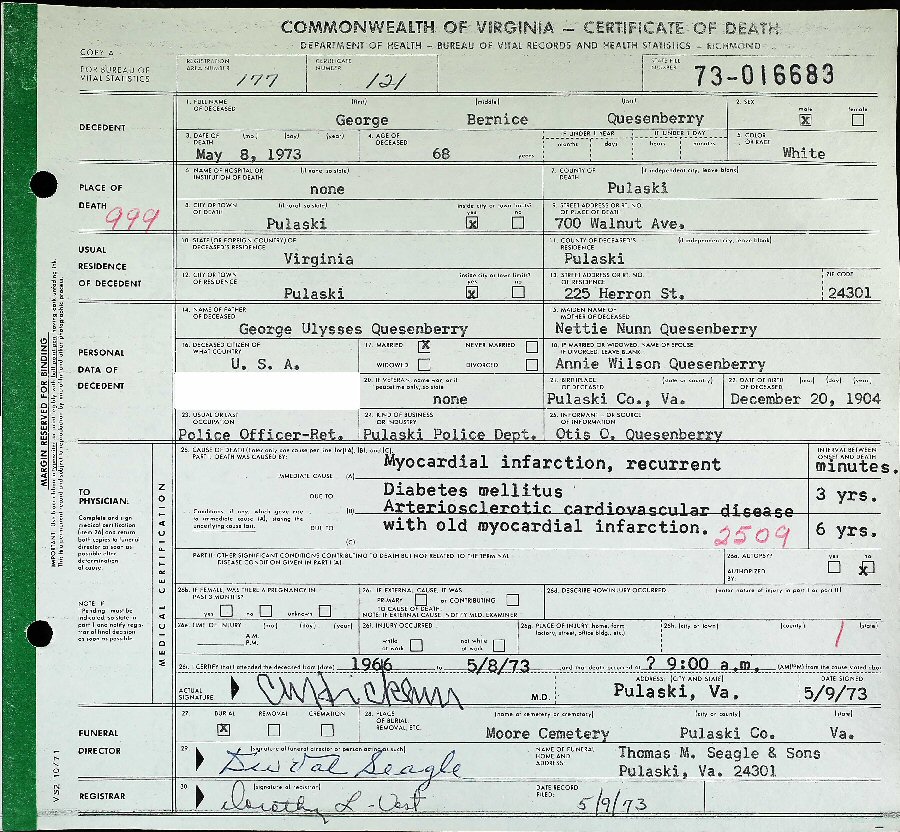 COMMONWEALTH OF VIRGINIA — CERTIFICATE OF DEATH
DEPARTMENT OF HEALTH — BUREAU OF VITAL RECORDS AND HEALTH STATISTICS — RICHMOND
COPY A
FOR BUREAU OF
VITAL STATISTICS
REGISTRATION
AREA NUMBER 177
CERTIFICATE
NUMBER 121
STATE FILE
NUMBER 73-016683
DECEDENT
1. FULL NAME
OF DECEASED
(first) (middle) (last)
George Bernice Quesenberry
2. SEX
male female
X
3. DATE OF
DEATH
(mo) (day) (year)
May 8, 1973
4. AGE OF
DECEASED
68 years
IF UNDER 1 YEAR
months days
IF UNDER 1 DAY
hours minutes
5. COLOR
OR RACE
White
PLACE OF
DEATH
999
6. NAME OF HOSPITAL OR
INSTITUTION OF DEATH
(if none so state)
none
7. COUNTY OF
DEATH
(if independent city, leave blank)
Pulaski
8. CITY OR TOWN
OF DEATH
(if rural so state)
Pulaski
inside city or town limits?
yes no
X
9. STREET ADDRESS OR RT. NO.
OF PLACE OF DEATH
700 Walnut Ave.
USUAL
RESIDENCE
OF DECEDENT
10. STATE (OR FOREIGN COUNTRY) OF
DECEASED'S RESIDENCE
Virginia
11. COUNTY OF DECEASED'S
RESIDENCE
(if independent city, leave blank)
Pulaski
12. CITY OR TOWN
OF RESIDENCE
Pulaski
inside city or town limits?
yes no
X
13. STREET ADDRESS OR RT. NO.
OF RESIDENCE
225 Herron St.
ZIP CODE
24301
PERSONAL
DATA OF
DECEDENT
14. NAME OF FATHER
OF DECEASED
George Ulysses Quesenberry
15. MAIDEN NAME OF
MOTHER OF DECEASED
Nettie Nunn Quesenberry
16. DECEASED CITIZEN OF
WHAT COUNTRY
U. S. A.
17. MARRIED X NEVER MARRIED
WIDOWED DIVORCED
18. IF MARRIED OR WIDOWED, NAME OF SPOUSE
IF DIVORCED, LEAVE BLANK
Annie Wilson Quesenberry
20. IF VETERAN, name war, or if
peacetime only, so state
none
21. BIRTHPLACE
OF DECEASED
(state or country)
Pulaski Co., Va.
22. DATE OF BIRTH
OF DECEASED
(mo) (day) (year)
December 20, 1904
23. USUAL OR LAST
OCCUPATION
Police Officer-Ret.
24. KIND OF BUSINESS
OR INDUSTRY
Pulaski Police Dept.
25. INFORMANT - OR SOURCE
OF INFORMATION
Otis O. Quesenberry
MARGIN RESERVED FOR BINDING
TO
PHYSICIAN:
Complete and sign
medical certification
(item 26) and return
both copies to funeral
director as soon as
possible after
determination
of cause.
NOTE: If
"Pending" must be
indicated, so state in
part I and notify regis-
trar of final decision
as soon as possible
MEDICAL CERTIFICATION
26. CAUSE OF DEATH (Enter only one cause per line for (A), (B), and (C)
PART I. DEATH WAS CAUSED BY:
IMMEDIATE CAUSE (A)
Myocardial infarction, recurrent
INTERVAL BETWEEN
ONSET AND DEATH
minutes.
DUE TO
Diabetes mellitus
3 yrs.
Conditions, if any, which gave rise
to immediate cause (A), stating the
underlying cause last.
(B)
Arteriosclerotic cardiovascular disease
DUE TO
with old myocardial infarction.
2509
6 yrs.
(C)
PART II. OTHER SIGNIFICANT CONDITIONS CONTRIBUTING TO DEATH BUT NOT RELATED TO THE TERMINAL
DISEASE CONDITION GIVEN IN PART I(A)
26a. AUTOPSY?
yes no
X
AUTHORIZED
BY:
26b. IF FEMALE, WAS THERE A PREGNANCY IN
PAST 3 MONTHS?
yes no unknown
26c. IF EXTERNAL CAUSE, IT WAS
PRIMARY or CONTRIBUTING
TO CAUSE OF DEATH
NOTE: IF EXTERNAL CAUSE NOTIFY MED. EXAMINER
26d. DESCRIBE HOW INJURY OCCURRED
(enter nature of injury in part I or part II)
26e. TIME OF INJURY (mo) (day) (year)
A.M.
P.M.
26f. INJURY OCCURRED
while at work
not while at work
26g. PLACE OF INJURY (home, farm,
factory, street, office bldg., etc.)
26h. (city or town) (county) (state)
1
26i. I CERTIFY that I attended the deceased from (date) 1966 to 5/8/73 and that death occurred at ? 9:00 a.m. (AM)(PM) from the cause stated above
ACTUAL
SIGNATURE
M.D.
ADDRESS: (CITY AND STATE)
Pulaski, Va.
DATE SIGNED
5/9/73
FUNERAL
DIRECTOR
27. BURIAL REMOVAL CREMATION
X
28. PLACE
OF BURIAL
REMOVAL, ETC.
(name of cemetery or crematory) (city or county) (state)
Moore Cemetery Pulaski Co. Va.
29. (signature of funeral director or person acting as such)
Seagle
NAME OF FUNERAL
HOME AND
ADDRESS:
Thomas M. Seagle & Sons
Pulaski, Va. 24301
REGISTRAR
30. (signature of registrar)
Dorothy L. Vest
DATE RECORD
FILED: 5/9/73
VS2 10/71